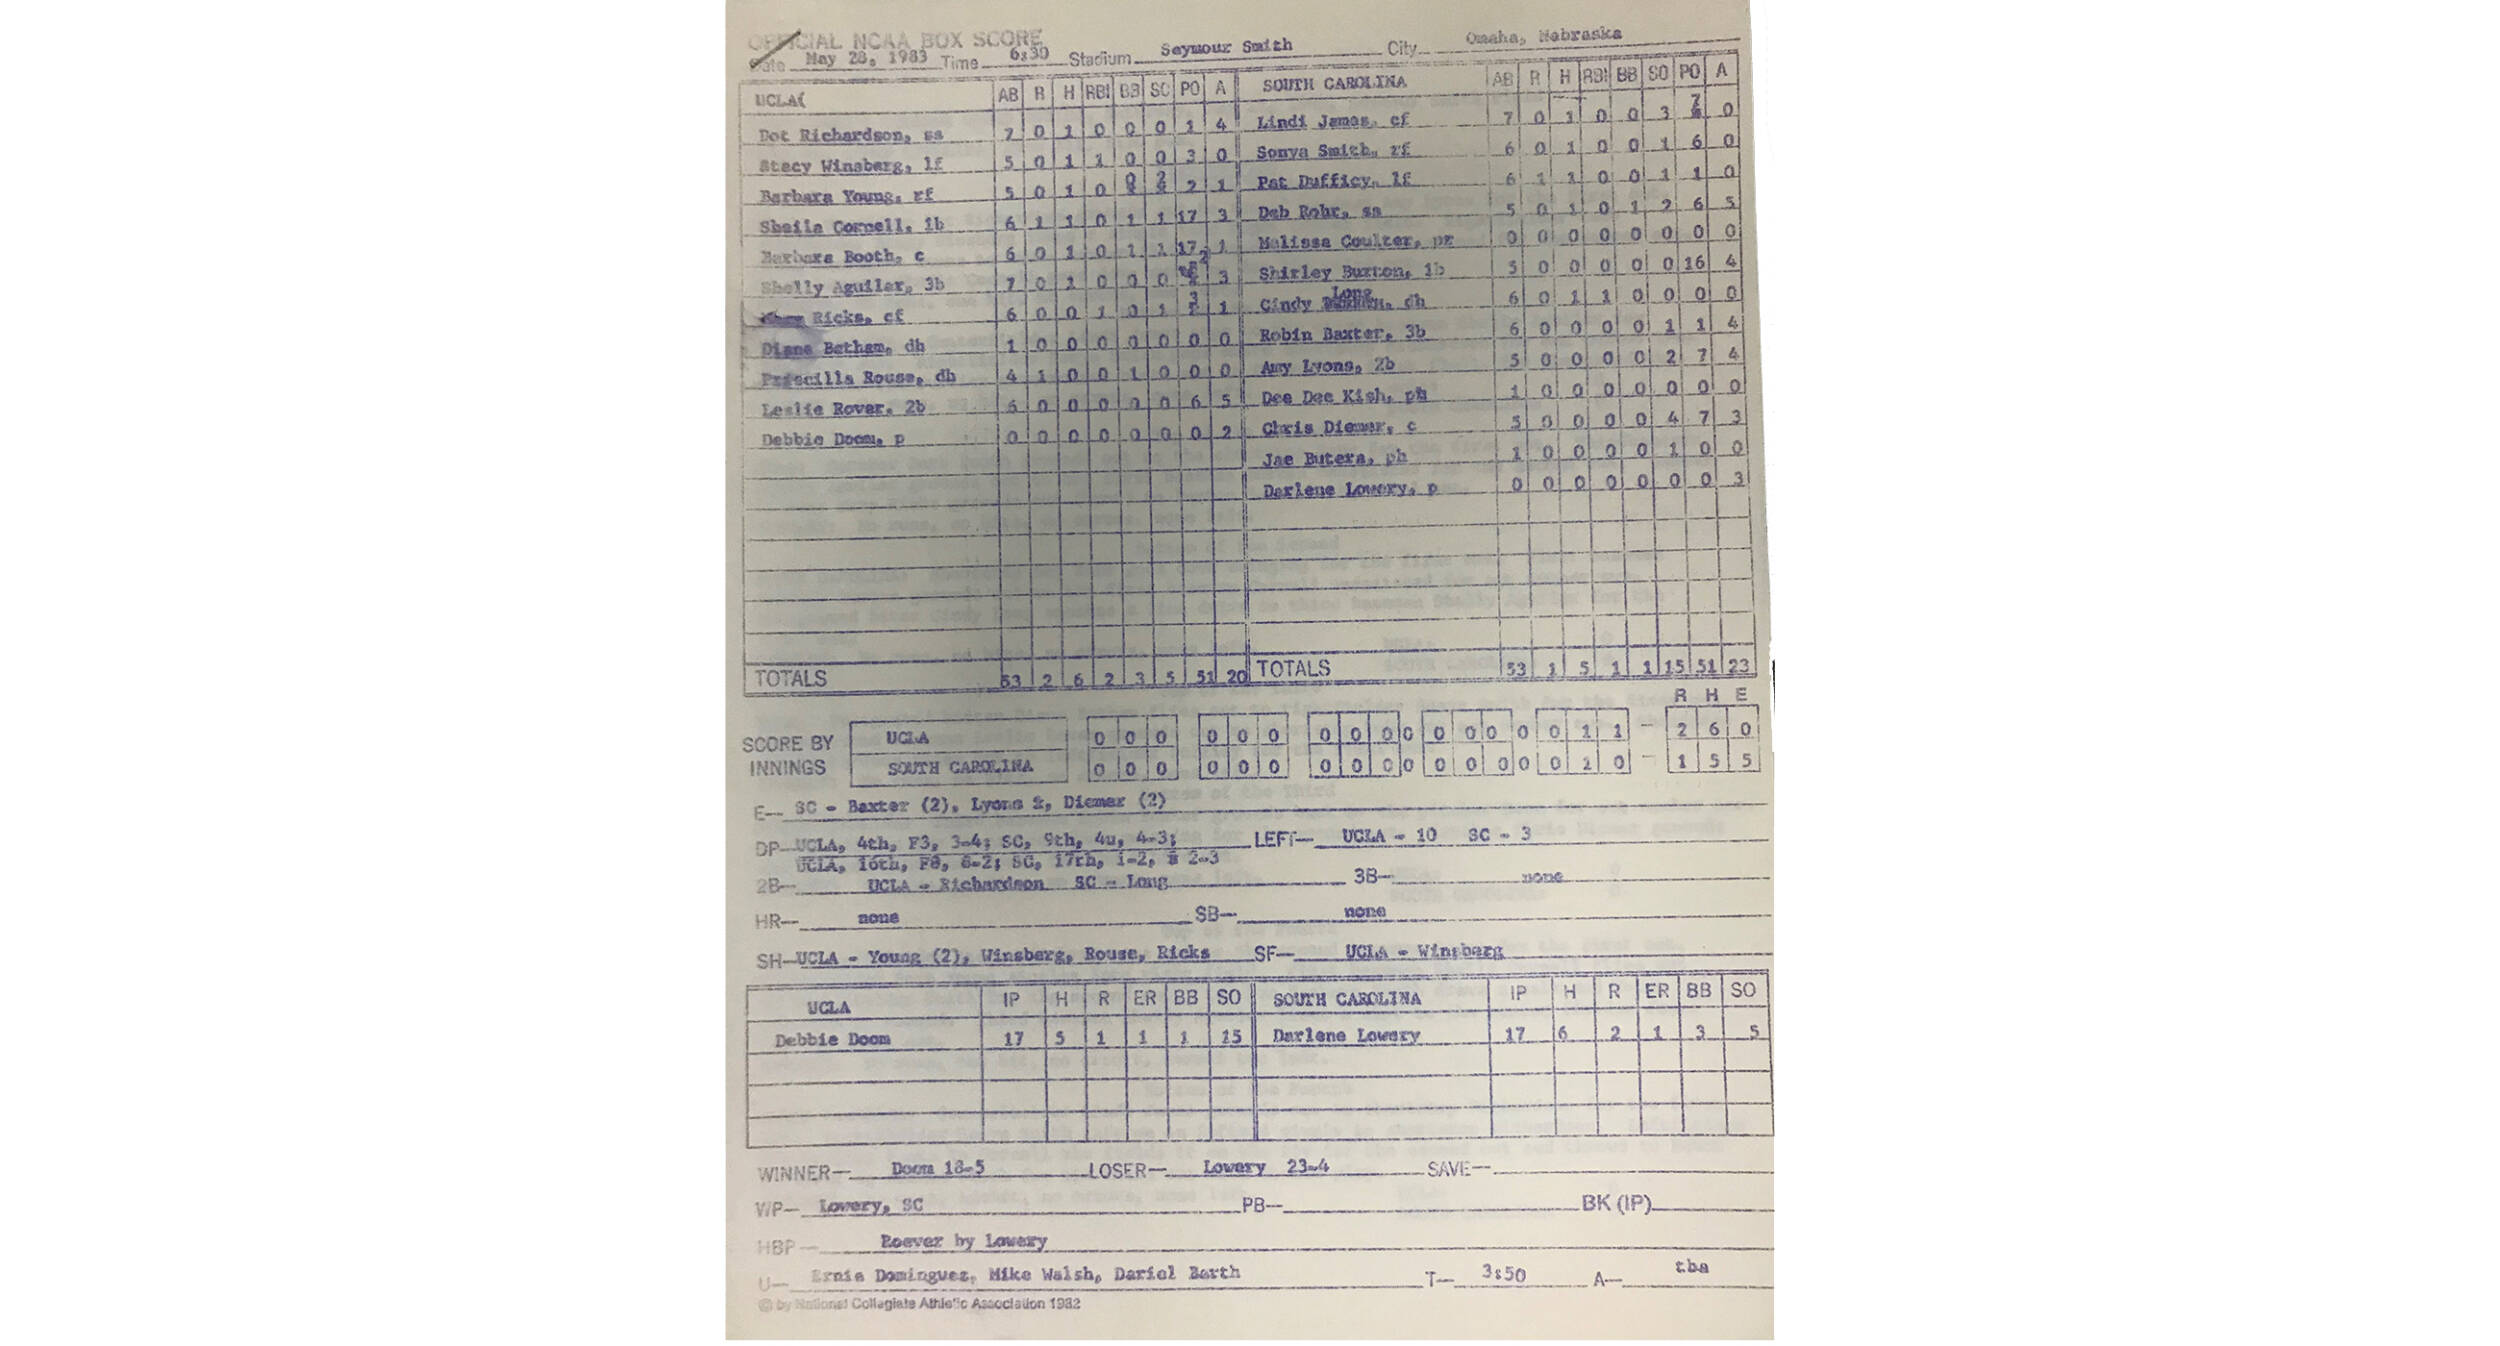 OFFICIAL NCAA BOX SCORE
Date May 28, 1983 Time 6:30 Stadium Seymour Smith City Omaha, Nebraska
UCLA( AB R H RBI BB SO PO A SOUTH CAROLINA AB R H RBI BB SO PO A
Dot Richardson, ss 7 0 1 0 0 0 1 4 Lindi James, cf 7 0 1 0 0 3 7 0
Stacy Winsberg, lf 5 0 1 1 0 0 3 0 Sonya Smith, rf 6 0 1 0 0 1 6 0
Barbara Young, rf 5 0 1 0 0 2 2 1 Pat Dufficy, lf 6 1 1 0 0 1 1 0
Sheila Cornell, 1b 6 1 1 0 1 1 17 3 Deb Rohr, ss 5 0 1 0 1 2 6 5
Barbara Booth, c 6 0 1 0 1 1 17 1 Melissa Coulter, pr 0 0 0 0 0 0 0 0
Shelly Aguilar, 3b 7 0 1 0 0 0 2 3 Shirley Burton, 1b 5 0 0 0 0 0 16 4
Ricks, cf 6 0 0 1 0 1 3 1 Cindy Long, dh 6 0 1 1 0 0 0 0
Diane Betham, dh 1 0 0 0 0 0 0 0 Robin Baxter, 3b 6 0 0 0 0 1 1 4
Priscilla Rouse, dh 4 1 0 0 1 0 0 0 Amy Lyons, 2b 5 0 0 0 0 2 7 4
Leslie Rover, 2b 6 0 0 0 0 0 6 5 Dee Dee Kish, ph 1 0 0 0 0 0 0 0
Debbie Doom, p 0 0 0 0 0 0 0 2 Chris Diemer, c 5 0 0 0 0 4 7 3
Jae Butera, ph 1 0 0 0 0 1 0 0
Darlene Lowery, p 0 0 0 0 0 0 0 3
TOTALS 53 2 6 2 3 5 51 20 TOTALS 53 1 5 1 1 15 51 23
R H E
SCORE BY INNINGS
UCLA 0 0 0 0 0 0 0 0 0 0 0 0 0 0 0 1 1 - 2 6 0
SOUTH CAROLINA 0 0 0 0 0 0 0 0 0 0 0 0 0 0 0 1 0 - 1 5 5
E— SC - Baxter (2), Lyons, Diemer (2)
DP—UCLA, 4th, F3, 3-4; SC, 9th, 4u, 4-3; LEFT— UCLA - 10 SC - 3
UCLA, 16th, F8, 8-2; SC, 17th, 1-2, 2-3
2B— UCLA - Richardson SC - Long 3B— none
HR— none SB— none
SH—UCLA - Young (2), Winsberg, Rouse, Ricks SF— UCLA - Winsberg
UCLA IP H R ER BB SO SOUTH CAROLINA IP H R ER BB SO
Debbie Doom 17 5 1 1 1 15 Darlene Lowery 17 6 2 1 3 5
WINNER— Doom 18-5 LOSER— Lowery 23-4 SAVE—
WP— Lowery, SC PB— BK (IP)
HBP— Roever by Lowery
U— Ernie Dominguez, Mike Walsh, Dariel Barth T— 3:50 A— tba
© by National Collegiate Athletic Association 1982